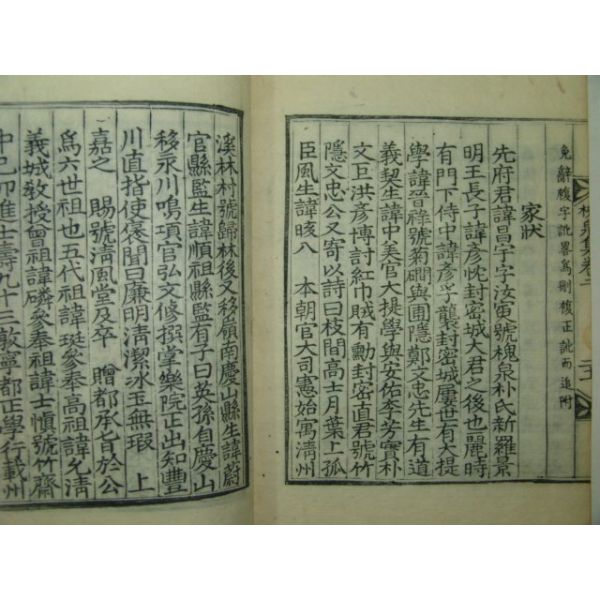 免辭腹字訛畧爲刪複正訛而追附
家狀
先府君諱昌宇字汝寅號槐泉朴氏新羅景
明王長子諱彦忱封密城大君之後也麗時
有門下侍中諱彦孚襲封密城屢世有大提
學諱晉祿號菊磵與圃隱鄭文忠先生有道
義契生諱中美官大提學與安佑李芳實朴
文丑洪彦博討紅巾賊有勳封密直君號竹
隱文忠公又寄以詩曰枝間高士月葉上孤
臣風生諱晐入 本朝官大司憲始寓淸州
溪林村號歸林後又移嶺南慶山縣生諱蔚
官縣監生諱順祖縣監有子曰英孫自慶山
移永川鳴項官弘文修撰掌樂院正出知豐
川直指使褒聞曰廉明淸潔冰玉無瑕 上
嘉之 賜號淸風堂及卒 贈都承旨於公
爲六世祖也五代祖諱珽參奉高祖諱允淸
義城敎授曾祖諱磷參奉祖諱士愼號竹齋
中己卯進士壽九十三敦寧都正學行載州